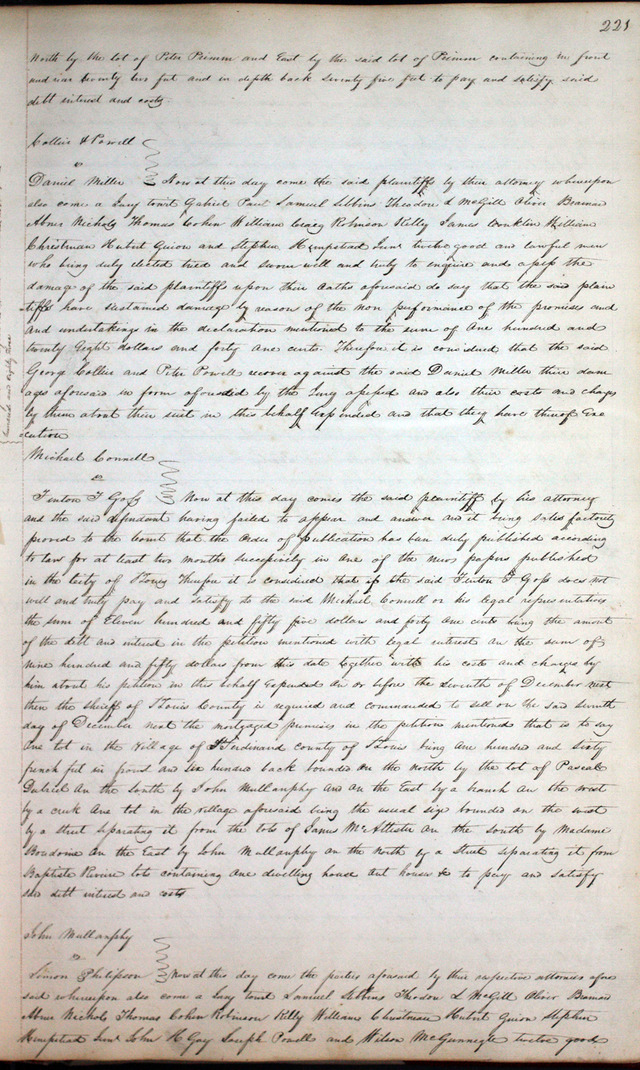 221
North by the lot of Peter Primm and East by the said lot of Primm containing in front
and rear twenty two feet and in depth back seventy five feet to pay and satisfy said
debt interest and costs
Collier & Powell
vs
Daniel Miller Now at this day come the said plaintiffs by their attorney whereupon
also come a Jury towit Gabriel Paul Samuel Theodore L McGill Oliver
Abner Nichols Thomas Cohen William Robinson Kelly James Conklin William
Christman Hubert Guion and Stephen Hempstead Junr twelve good and lawful men
who being duly elected tried and sworn well and truly to enquire and assess the
damage of the said plaintiffs upon their oaths aforesaid do say that the said plain
tiffs have sustained damage by reason of the non performance of the promises and
and undertakings in the declaration mentioned to the sum of One hundred and
twenty Eight dollars and forty one cents. Therefore it is considered that the said
George Collier and Peter Powell recover against the said Daniel Miller their dam
ages aforesaid in form aforesaid by the Jury assessed and also their costs and charges
by them about their suit in this behalf Expended and that they have thereof Exe
cution
Michael Connell
vs
Fenton T Goss Now at this day comes the said plaintiff by his attorney
and the said defendant having failed to appear and answer and it being satisfactorily
proved to the Court that the Order of publication has been duly published according
to law for at least two months successively in one of the news papers published
in the City of St Louis Therefore it is considered that if the said Fenton T Goss does not
well and truly pay and satisfy to the said Michael Connell or his legal representatives
the sum of Eleven hundred and fifty five dollars and forty One cents being the amount
of the debt and interest in the petition mentioned with legal interest on the sum of
nine hundred and fifty dollars from this date together with his costs and charges by
him about his petition in this behalf Expended on or before the seventh of December next
then the sheriff of St Louis County is required and commanded to sell on the said seventh
day of December next the mortgaged premises in the petition mentioned that is to say
One lot in the Village of St Ferdinand county of St Louis being One hundred and sixty
french feet in front and six hundred back bounded on the north by the lot of Pascal
on the South by John Mullanphy and on the East by a branch on the west
by a creek One lot in the village aforesaid being the usual size bounded on the west
by a street separating it from the lots of James McAllister on the south by Madame
on the East by John Mullanphy on the North by a street separating it from
Baptiste lots containing One dwelling house out houses &c to pay and satisfy
said debt interest and costs
John Mullanphy
vs
Simon Philipson Now at this day come the parties aforesaid by their respective attornies afore
said whereupon also come a Jury towit Samuel Theodore L McGill Oliver
Abner Nichols Thomas Cohen Robinson Kelly William Christman Hubert Guion Stephen
Hempstead Junr John H Gay Joseph Powell and Wilson McGunnegle twelve good